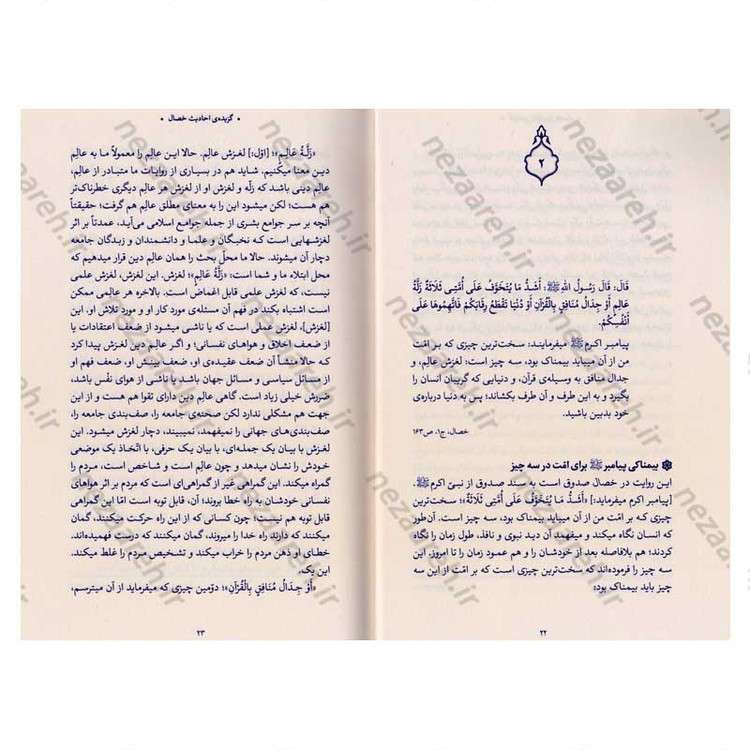 ۲
قَالَ: قَالَ رَسُولُ اللهِ ﷺ: أَشَدُّ مَا يُتَخَوَّفُ عَلَى أُمَّتِي ثَلَاثَةٌ زَلَّةُ
عَالِمٍ أَوْ جِدَالُ مُنَافِقٍ بِالْقُرْآنِ أَوْ دُنْيَا تَقْطَعُ رِقَابَكُمْ فَاتَّهِمُوهَا عَلَى
أَنْفُسِكُمْ.
پیامبر اکرم ﷺ میفرمایند: سخت‌ترین چیزی که بر امّت
من از آن میباید بیمناک بود، سه چیز است: لغزش عالِم، و
جدال منافق به وسیله‌ی قرآن، و دنیایی که گریبان انسان را
بگیرد و به این طرف و آن طرف بکشاند؛ پس به دنیا درباره‌ی
خود بدبین باشید.
خصال، ج۱، ص۱۶۳
بیمناکی پیامبر ﷺ برای امّت در سه چیز
ایـن روایت در خصال صدوق است به سـند صدوق از نبیّ اکرم ﷺ،
[پیامبر اکرم میفرماید:] «أَشَدُّ مَـا يُتَخَوَّفُ عَلَى أُمَّتِي ثَلَاثَةٌ»؛ سخت‌ترین
چیزی کـه بـر امّت من از آن میباید بیمناک بود، سه چیز است. آن‌طور
که انسان نگاه میکند و میفهمد آن دید نبوی و نافذ، طول زمان را نگاه
کردند؛ هم بلافاصله بعد از خودشان و هم عمود زمان را تا امروز. این
سه چیز را فرموده‌اند که سخت‌ترین چیزی است که بر امّت از این سه
چیز باید بیمناک بود؛
۲۲
گزیده‌ی احادیث خصال
«زَلَّةُ عَالِمٍ»؛ [اوّل:] لغزش عالِم. حالا ایـن عالِم را معمولاً ما به عالِم
دیـن معنا میکنیم. شاید هم در بسیاری از روایات ما متبـادر از عالِم،
عالِم دینی باشد که زلّه و لغزش او از لغزش هر عالِم دیگری خطرناک‌تر
هم هست؛ لکن میشود این را به معنای مطلق عالِم هم گرفت؛ حقیقتاً
آنچه بر سـر جوامع بشری از جمله جوامع اسلامی می‌آیـد، عمدتاً بر اثر
لغزشهایی است کـه نخبگان و علمـا و دانشمندان و زبـدگان جامعه
دچار آن میشوند. حالا ما محلّ بحث را همان عالِم دین قرار میدهیم که
محل ابتلاء ما و شما است: «زَلَّةُ عَالِمٍ»؛ لغزش. این لغزش، لغزش علمی
نیست، که لغزش علمی قابل اغماض است. بالاخره هر عالِمی ممکن
است اشتباه بکند در فهم آن مسئله‌ی مورد کار او و مورد تلاش او. این
[لغزش]، لغزش عملی است که یا ناشی میشود از ضعف اعتقادات یا
از ضعف اخلاق و هواهای نفسانی؛ و اگـر عالِم دین لغزش پیدا کرد
که حالا منشأ آن ضعف عقیده‌ی او، ضعف بینش او، ضعف فهم او
از مسائل سیاسی و مسائل جهان باشد یا ناشی از هوای نفْس باشد،
ضررش خیلی زیاد است. گاهی عالِم دین دارای تقوا هم هست و از این
جهت هم مشکلی ندارد لکن صحنه‌ی جامعه را، صف‌بندی جامعه را،
صف‌بندی‌های جهانی را نمیفهمد، نمیبیند، دچار لغزش میشود. این
لغزش با بیان یـک جملـه‌ای، با بیان یک حرفی، با اتّخاذ یـک موضعی
خودش را نشان میدهد و چون عالِم است و شاخص است، مـردم را
گمراه میکند. این گمراهی غیر از گمراهی‌ای است که مردم بر اثر هواهای
نفسانی خودشان به راه خطا بروند؛ آن، قابل توبه است امّا این گمراهی
قابل توبه هم نیست؛ چون کسانی که از این راه حرکت میکنند، گمان
میکنند که دارند راه خدا را میروند، گمان میکنند که درست فهمیده‌اند.
خطای او ذهن مردم را خراب میکند و تشخیص مردم را غلط میکند.
این یک.
«أَوْ جِدَالُ مُنَافِقٍ بِالْقُرْآنِ»؛ دوّمین چیزی که میفرماید از آن میترسم،
۲۳
nezaareh.ir